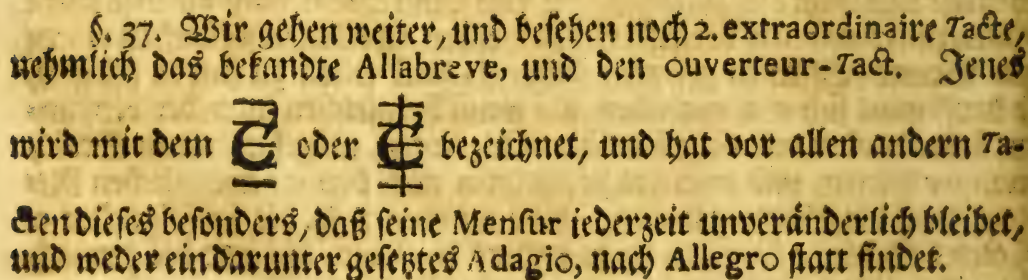 §. 37. Wir gehen weiter, und besehen noch 2. extraordinaire Tacte,
nehmlich das bekandte Allabreve, und den ouverteur-Tact. Jenes
wird mit dem C oder ₵ bezeichnet, und hat vor allen andern Ta-
cten dieses besonders, daß seine Mensur iederzeit unveränderlich bleibet,
und weder ein darunter gesetztes Adagio, nach Allegro statt findet.